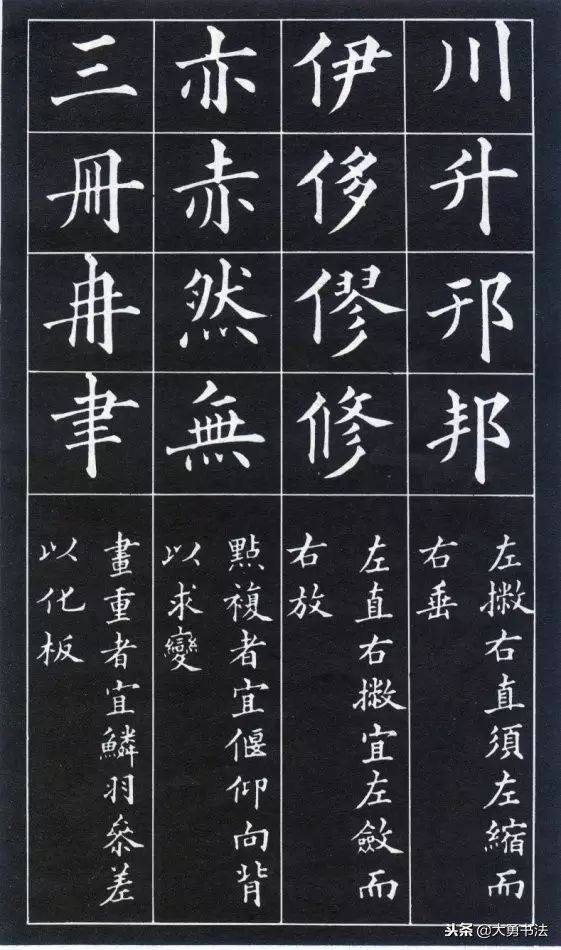 川
升
邦
左撇右直須左縮而
右垂
伊
侈
僇
修
左直右撇宜左斂而
右放
亦
赤
然
無
點複者宜偃仰向背
以求變
三
冊
冉
聿
畫重者宜鱗羽參差
以化板
头条@大勇书法